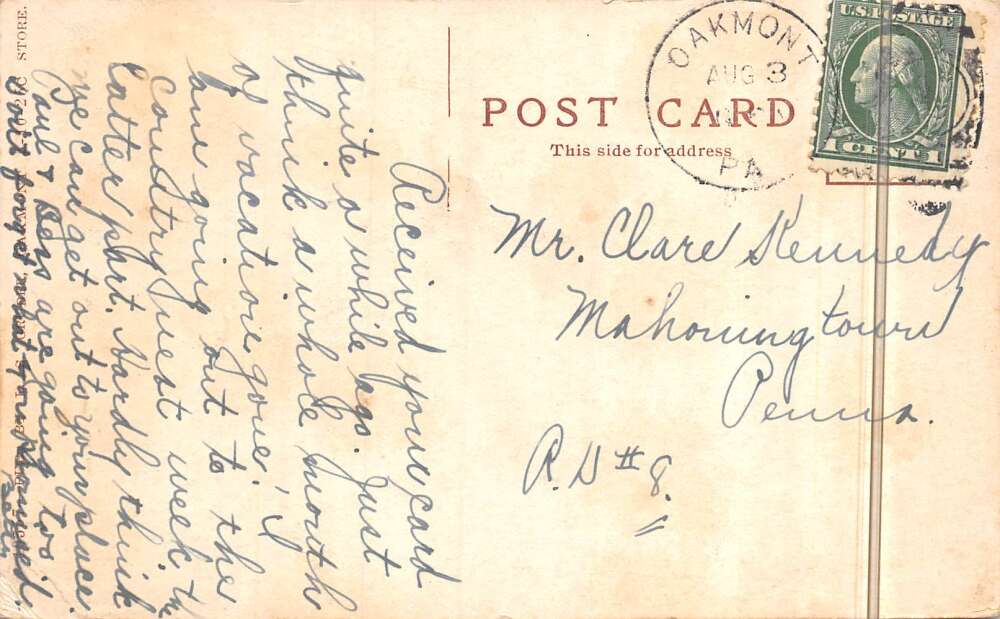 POST CARD
This side for address
OAKMONT
AUG 3
PA
U.S. POSTAGE
1 CENT 1
Mr. Clare Kennedy
Mahoningtown
Penna.
R.D # 8.
Received your card
quite a while ago. Just
think a whole month
of vacation gone. I
am going out to the
Country next week the
latter part. Hardly think
we can get out to your place.
Paul & are going too
Don't forget what you promised.
5 & 10 & 25C STORE.